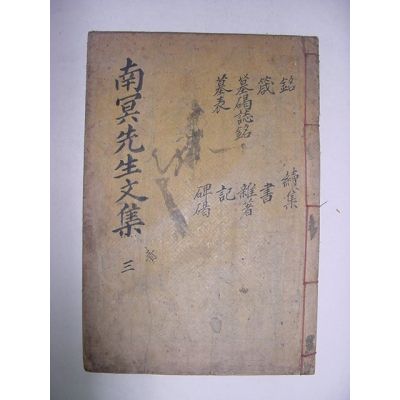 銘 續集
箴 書
墓碣誌銘 雜著
墓表 記
碑碣
南冥先生文集 三